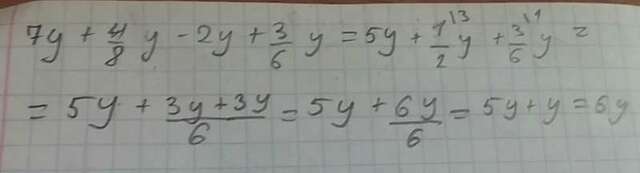 7y + 4/8 y - 2y + 3/6 y = 5y + 1/2 y^{13} + 3/6 y^{11} =
= 5y + (3y + 3y)/6 = 5y + 6y/6 = 5y + y = 6y